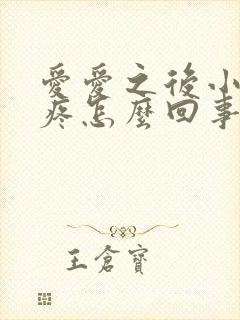 愛愛之後小
疼怎麼回事
王倉寶